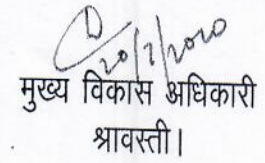 20/2/2020
मुख्य विकास अधिकारी
श्रावस्ती।